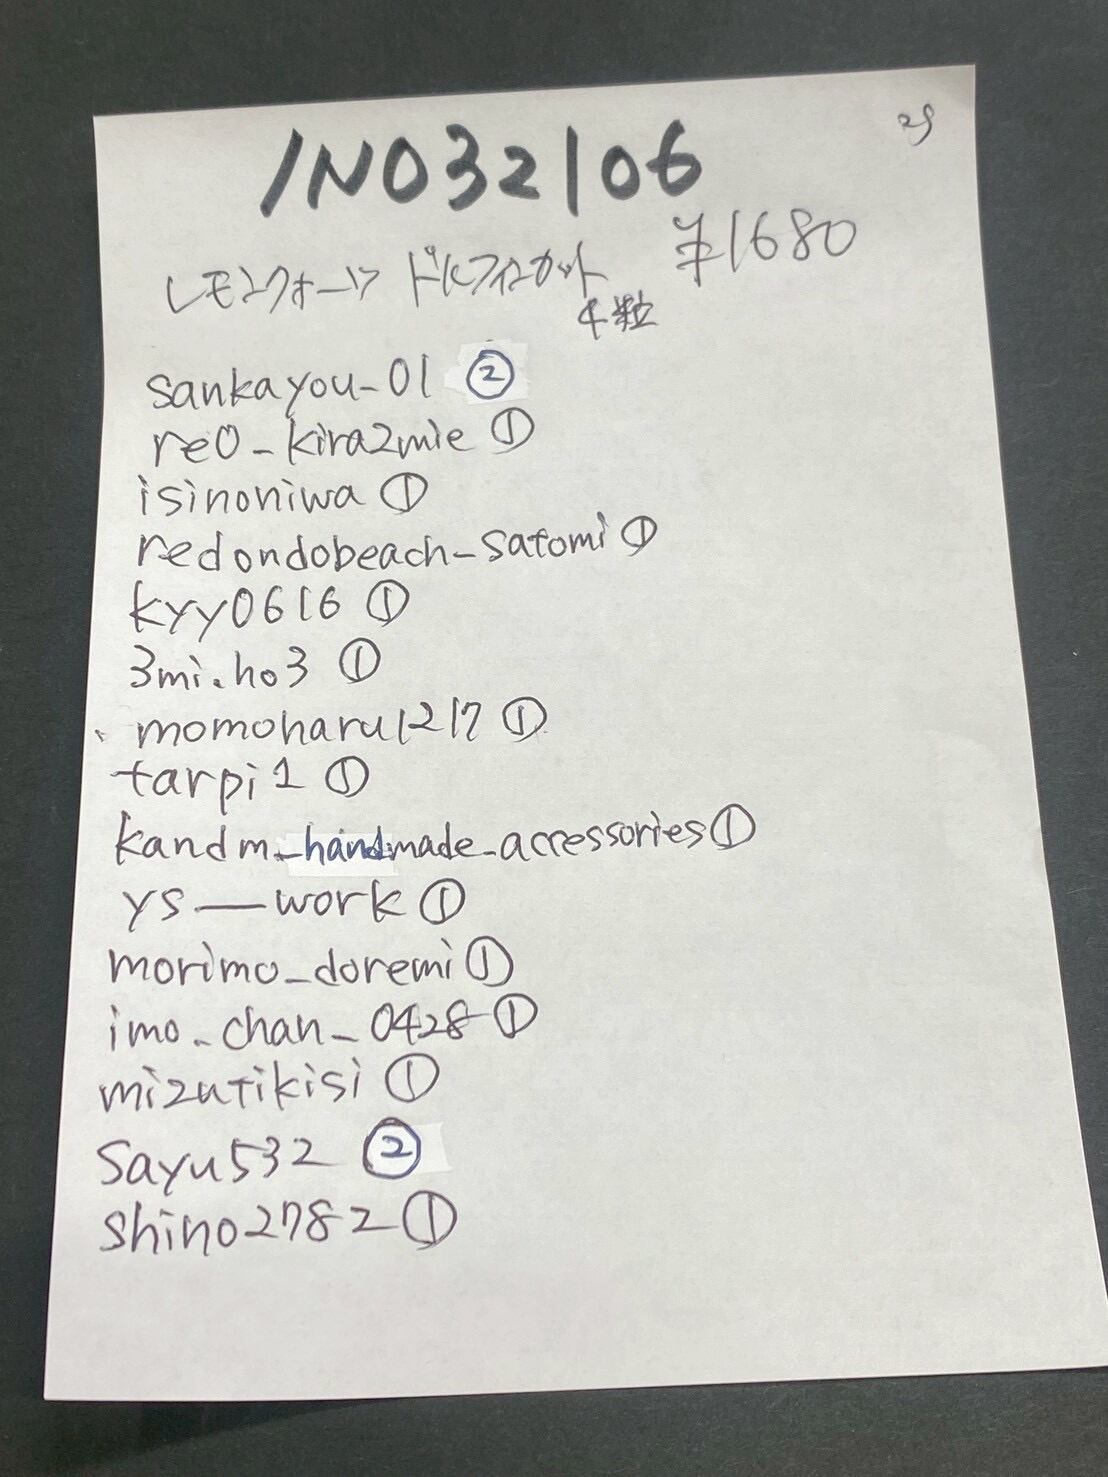 29
INO32106
レモンクォーツ ドルフィンカット ¥1680
4粒
sankayou-01 ②
re0_kira2mie ①
isinoniwa ①
redondobeach_satomi ①
kyy0616 ①
3mi.ho3 ①
momoharu1217 ①
tarpi1 ①
kandm_handmade_accessories ①
ys__work ①
morimo_doremi ①
imo_chan_0428 ①
mizutikisi ①
Sayu532 ②
shino2782 ①